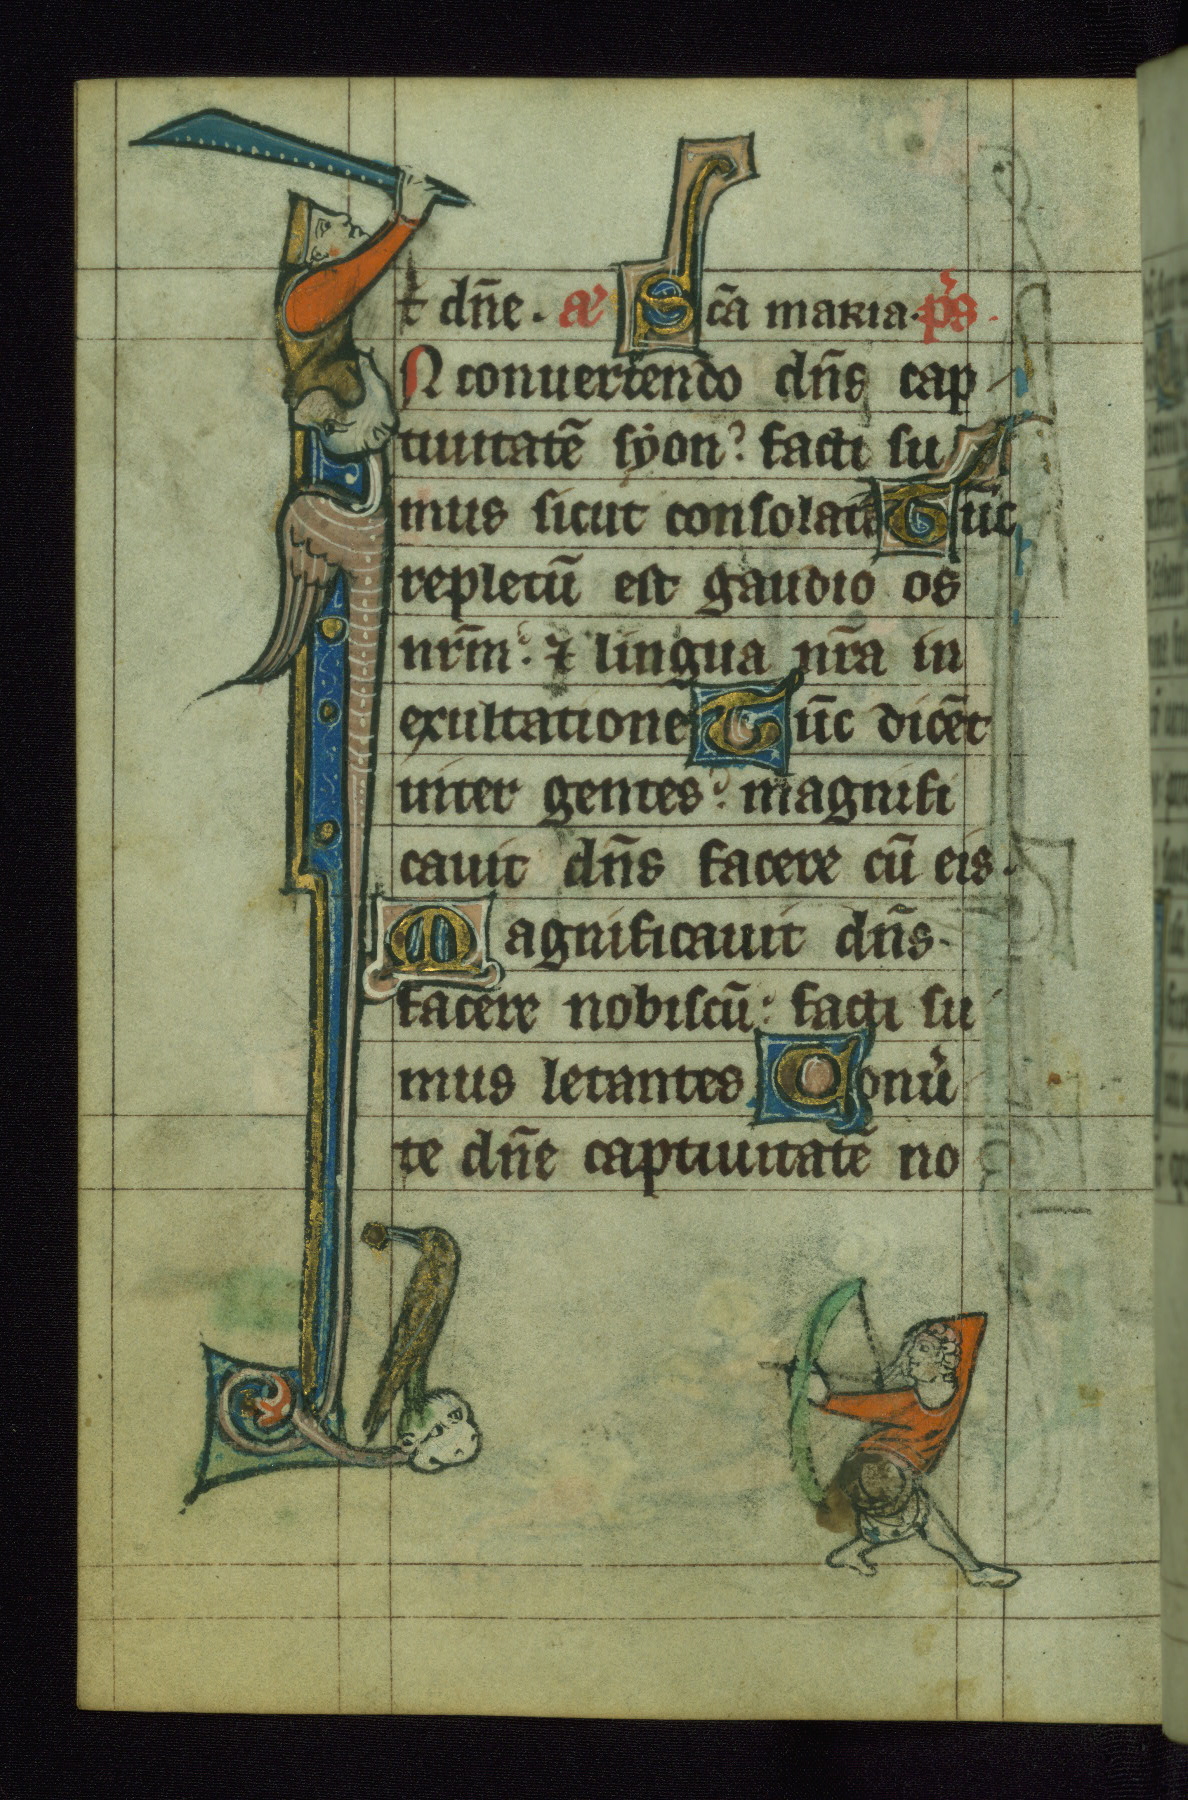 t dn̄e. a᷒ Scā maria. p̄s.
N conuertendo dn̄s cap
tiuitatē syon? facti su
mus sicut consolati Tūc
repletū est gaudio os
nr̄m: ⁊ lingua nr̄a in
exultatione Tūc dicēt
inter gentes? magnifi
cauit dn̄s facere cū eis.
Magnificauit dn̄s.
facere nobiscū: facti su
mus letantes Conū
te dn̄e captiuitatē no